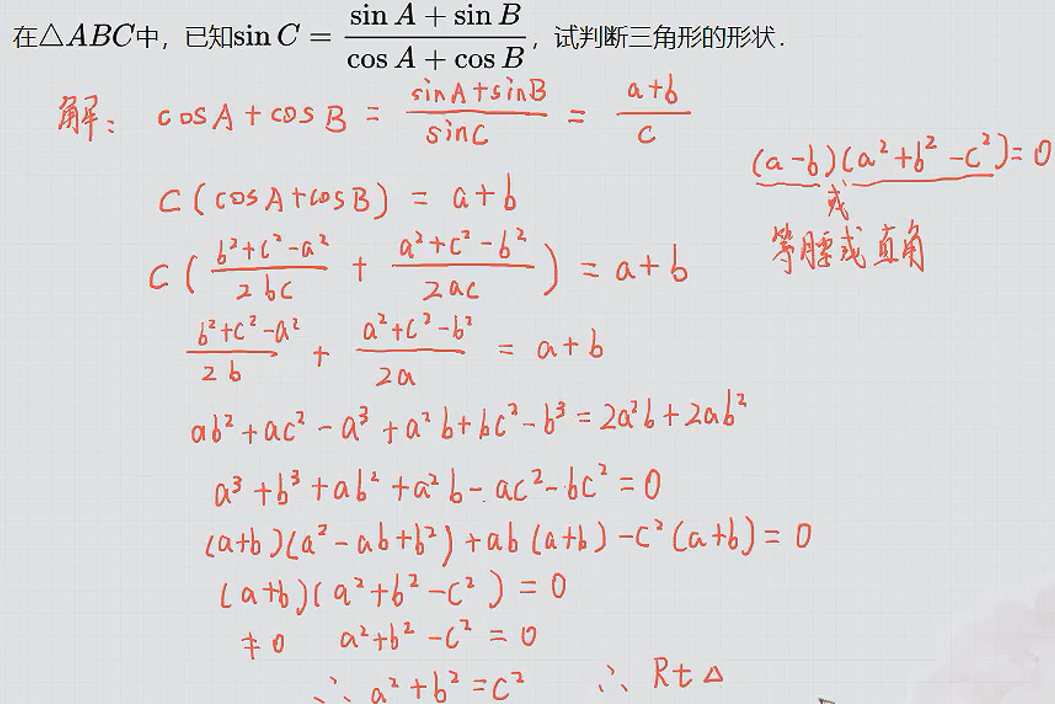 在△ABC中，已知sin C = (sin A + sin B)/(cos A + cos B)，试判断三角形的形状.
解： cosA + cosB = (sinA+sinB)/sinC = (a+b)/c
(a-b)(a²+b²-c²)=0
或
等腰或直角
C(cosA+cosB) = a+b
C((b²+c²-a²)/2bc + (a²+c²-b²)/2ac) = a+b
(b²+c²-a²)/2b + (a²+c²-b²)/2a = a+b
ab²+ac²-a³+a²b+bc²-b³=2a²b+2ab²
a³+b³+ab²+a²b-ac²-bc²=0
(a+b)(a²-ab+b²)+ab(a+b)-c²(a+b)=0
(a+b)(a²+b²-c²)=0
≠0 a²+b²-c²=0
∴ a²+b²=c² ∴ Rt△